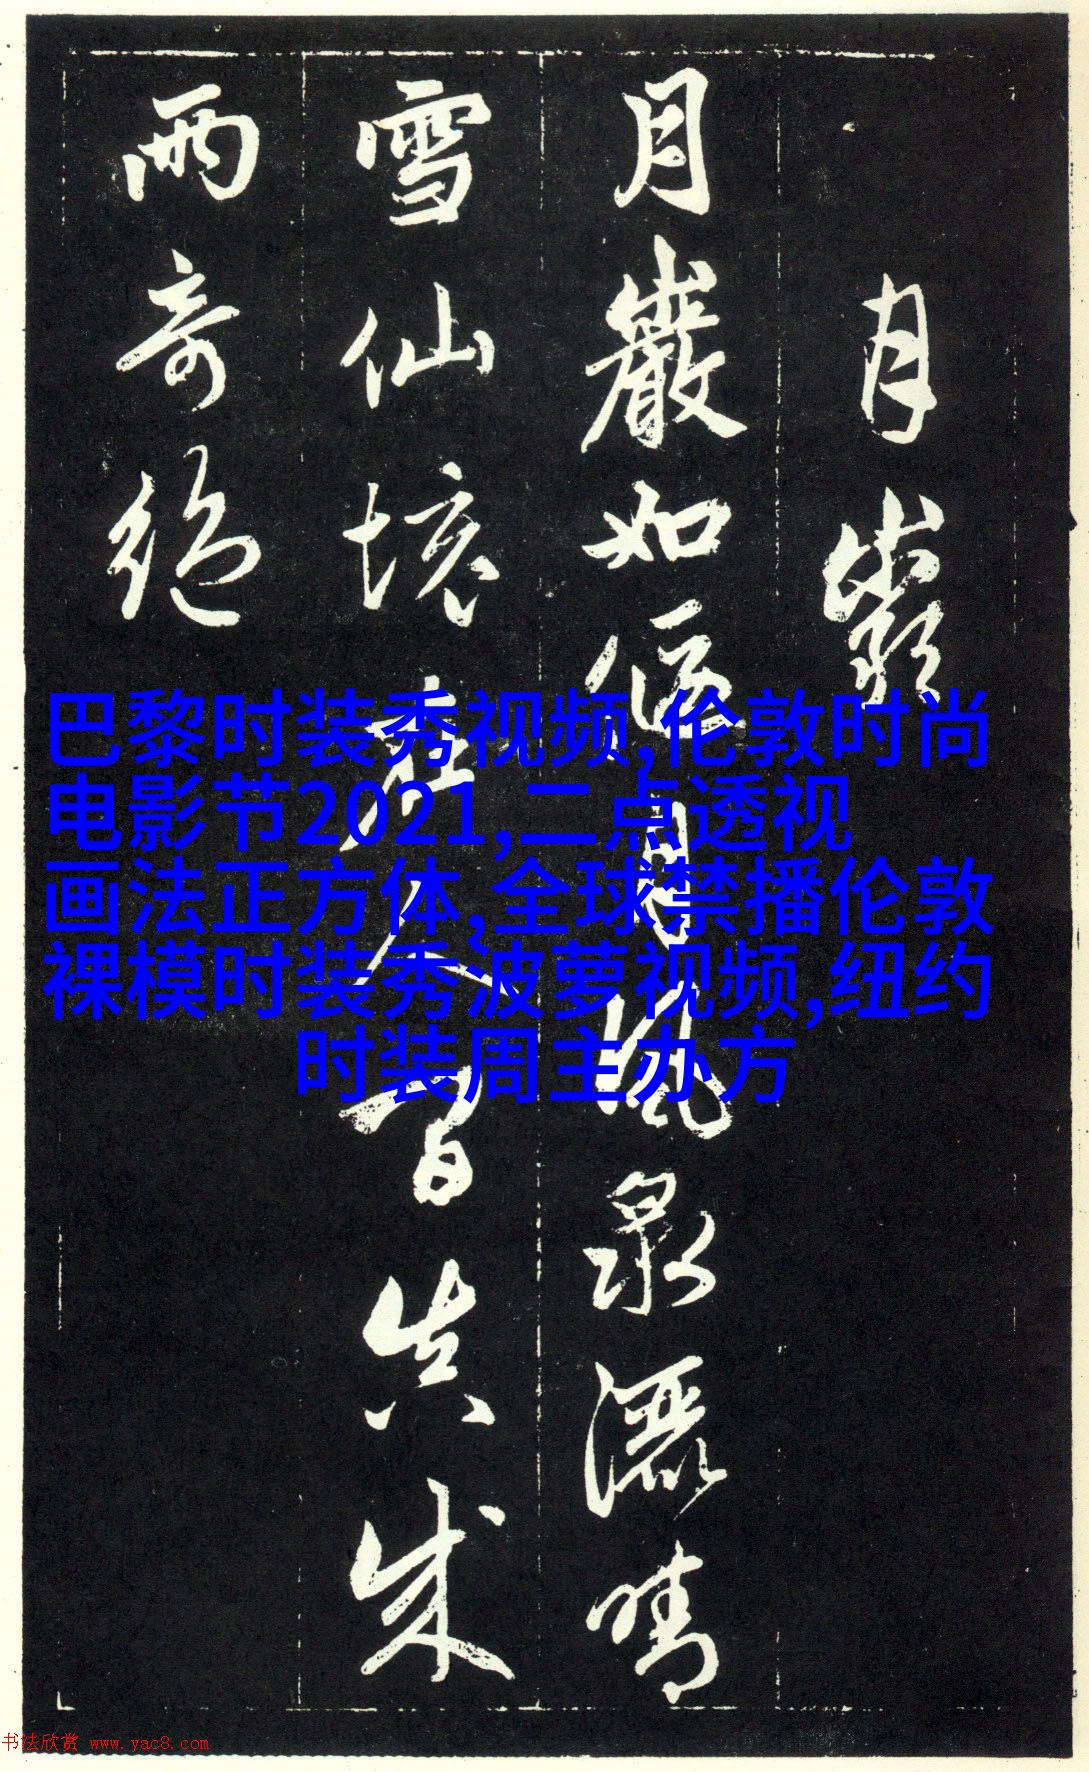 月巖
月巖如偃月風泉灑晴
雪仙境在人間真成
兩奇絕
巴黎时装秀视频,伦敦时尚
电影节2021,二点透视
画法正方体,全球禁播伦敦
裸模时装秀波萝视频,纽约
时装周主办方
书法欣赏 www.yac8.com